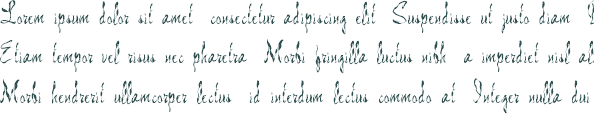 Lorem ipsum dolor sit amet consectetur adipiscing elit Suspendisse ut justo diam
Etiam tempor vel risus nec pharetra Morbi fringilla luctus nibh a imperdiet nisl al
Morbi hendrerit ullamcorper lectus id interdum lectus commodo at Integer nulla dui